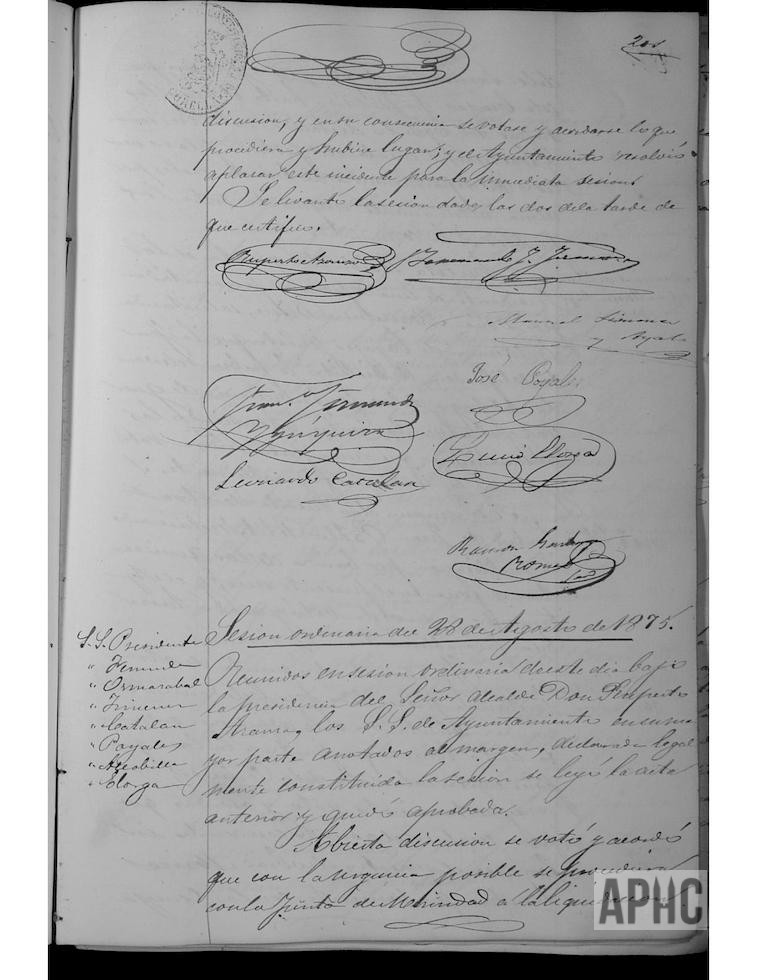 201
discusion, y en su consecuencia se votase y acordase lo que
procediera y hubiere lugar; y el Ayuntamiento resolvió
aplazar este incidente para la inmediata sesion.
Se levantó la sesion dadas las dos de la tarde de
que certifico.
Ruperto
Fernando J.
Manuel
y Ayala
José Poyales
Fernandez
Leonardo Catalan
Lucio Elorga
Ramon
Romeo
Sesion ordinaria del 28 de Agosto de 1875.
S.S. Presidente
" Ormazabal
" Jimenez
" Catalan
" Poyales
" Elorga
Reunidos en sesion ordinaria de este dia bajo
la presidencia del Señor Alcalde Don Ruperto
los S.S. de Ayuntamiento en su ma
yor parte anotados al margen, declarada legal
mente constituida la sesion se leyó la acta
anterior y quedó aprobada.
Abierta discusion se votó y acordó
que con la urgencia posible se procediera
con la Junta de Merindad á la liquidacion
APHC